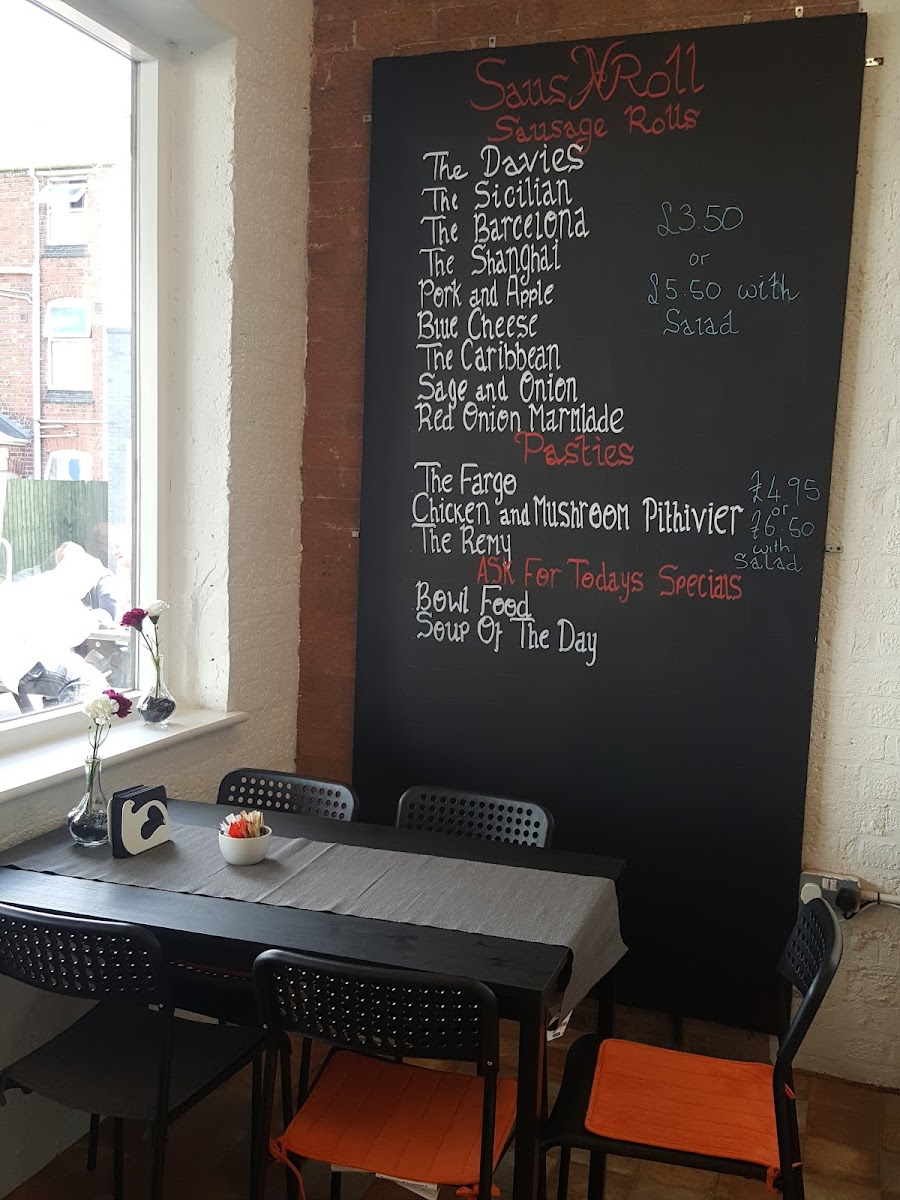 Saus N Roll
Sausage Rolls
The Davies
The Sicilian
The Barcelona
The Shanghai
Pork and Apple
Blue Cheese
The Caribbean
Sage and Onion
Red Onion Marmlade
£3.50
or
£5.50 with
Salad
Pasties
The Fargo
Chicken and Mushroom Pithivier
The Remy
£4.95
or
£6.50
with
Salad
ASK For Todays Specials
Bowl Food
Soup Of The Day